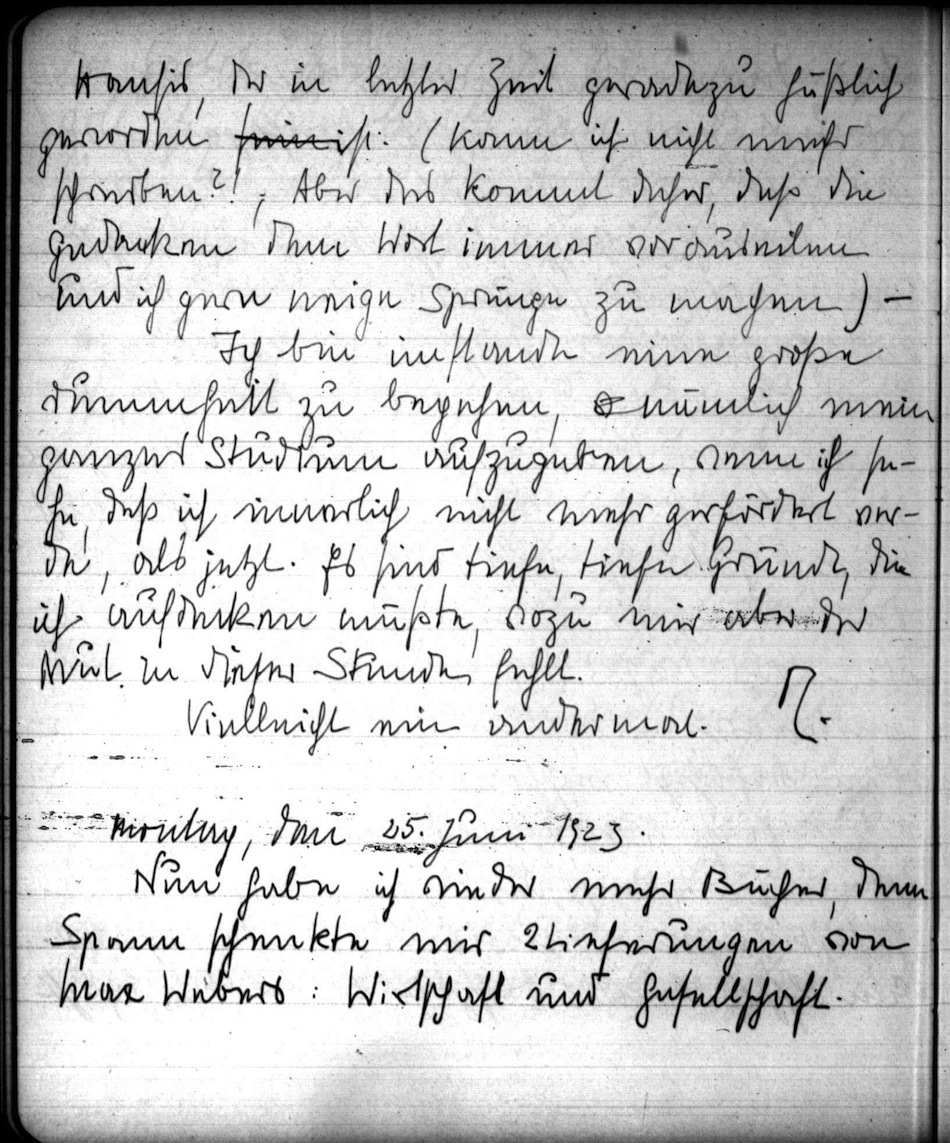 Hansis, der in letzter Zeit geradezu häßlich
geworden sein ist. (Kann ich nicht mehr
schreiben?!, Aber das kommt daher, daß die
Gedanken dem Wort immer vorauseilen
und ich gern neige Sprünge zu machen) –
Ich bin imstande eine große
Dummheit zu begehen, nämlich mein
ganzes Studium aufzugeben, wenn ich se-
he, daß ich innerlich nicht mehr gefördert wer-
de, als jetzt. Es sind tiefe, tiefe Gründe, die
ich aufdecken müßte, wozu mir aber der
Mut in dieser Stunde fehlt.
Vielleicht ein andermal.
Montag, den 25. Juni 1923.
Nun habe ich wieder mehr Bücher, denn
Spann schenkte mir 2 Lieferungen von
Max Webers: Wirtschaft und Gesellschaft.